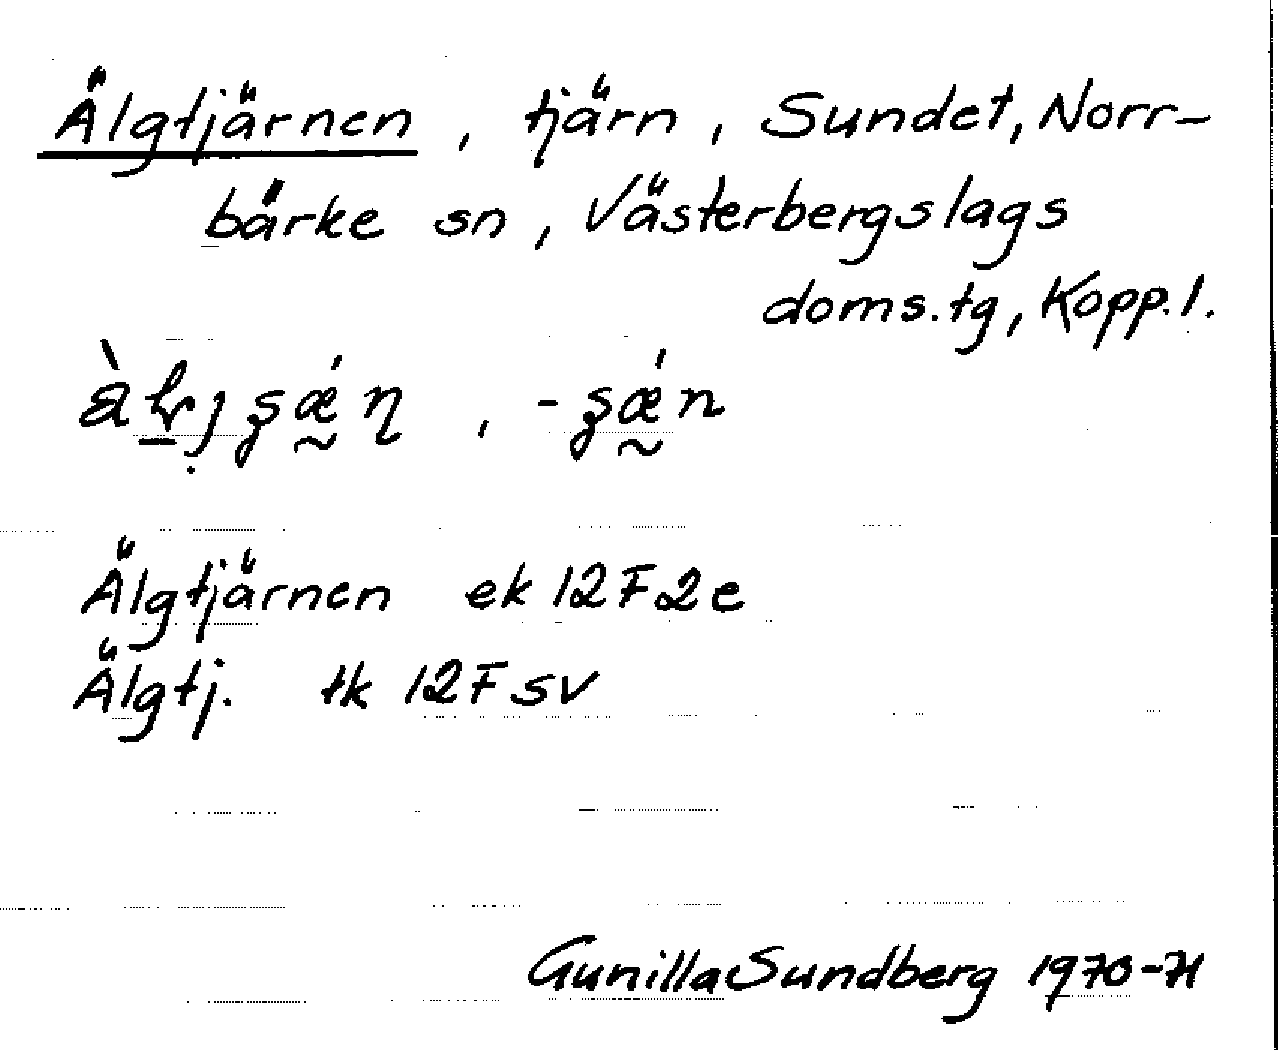 Älgtjärnen, tjärn, Sundet, Norr-
bärke sn, Västerbergslags
doms.tg, Kopp.l.
Älgtjärnen ek 12F2e
Älgtj. tk 12F SV
Gunilla Sundberg 1970-71